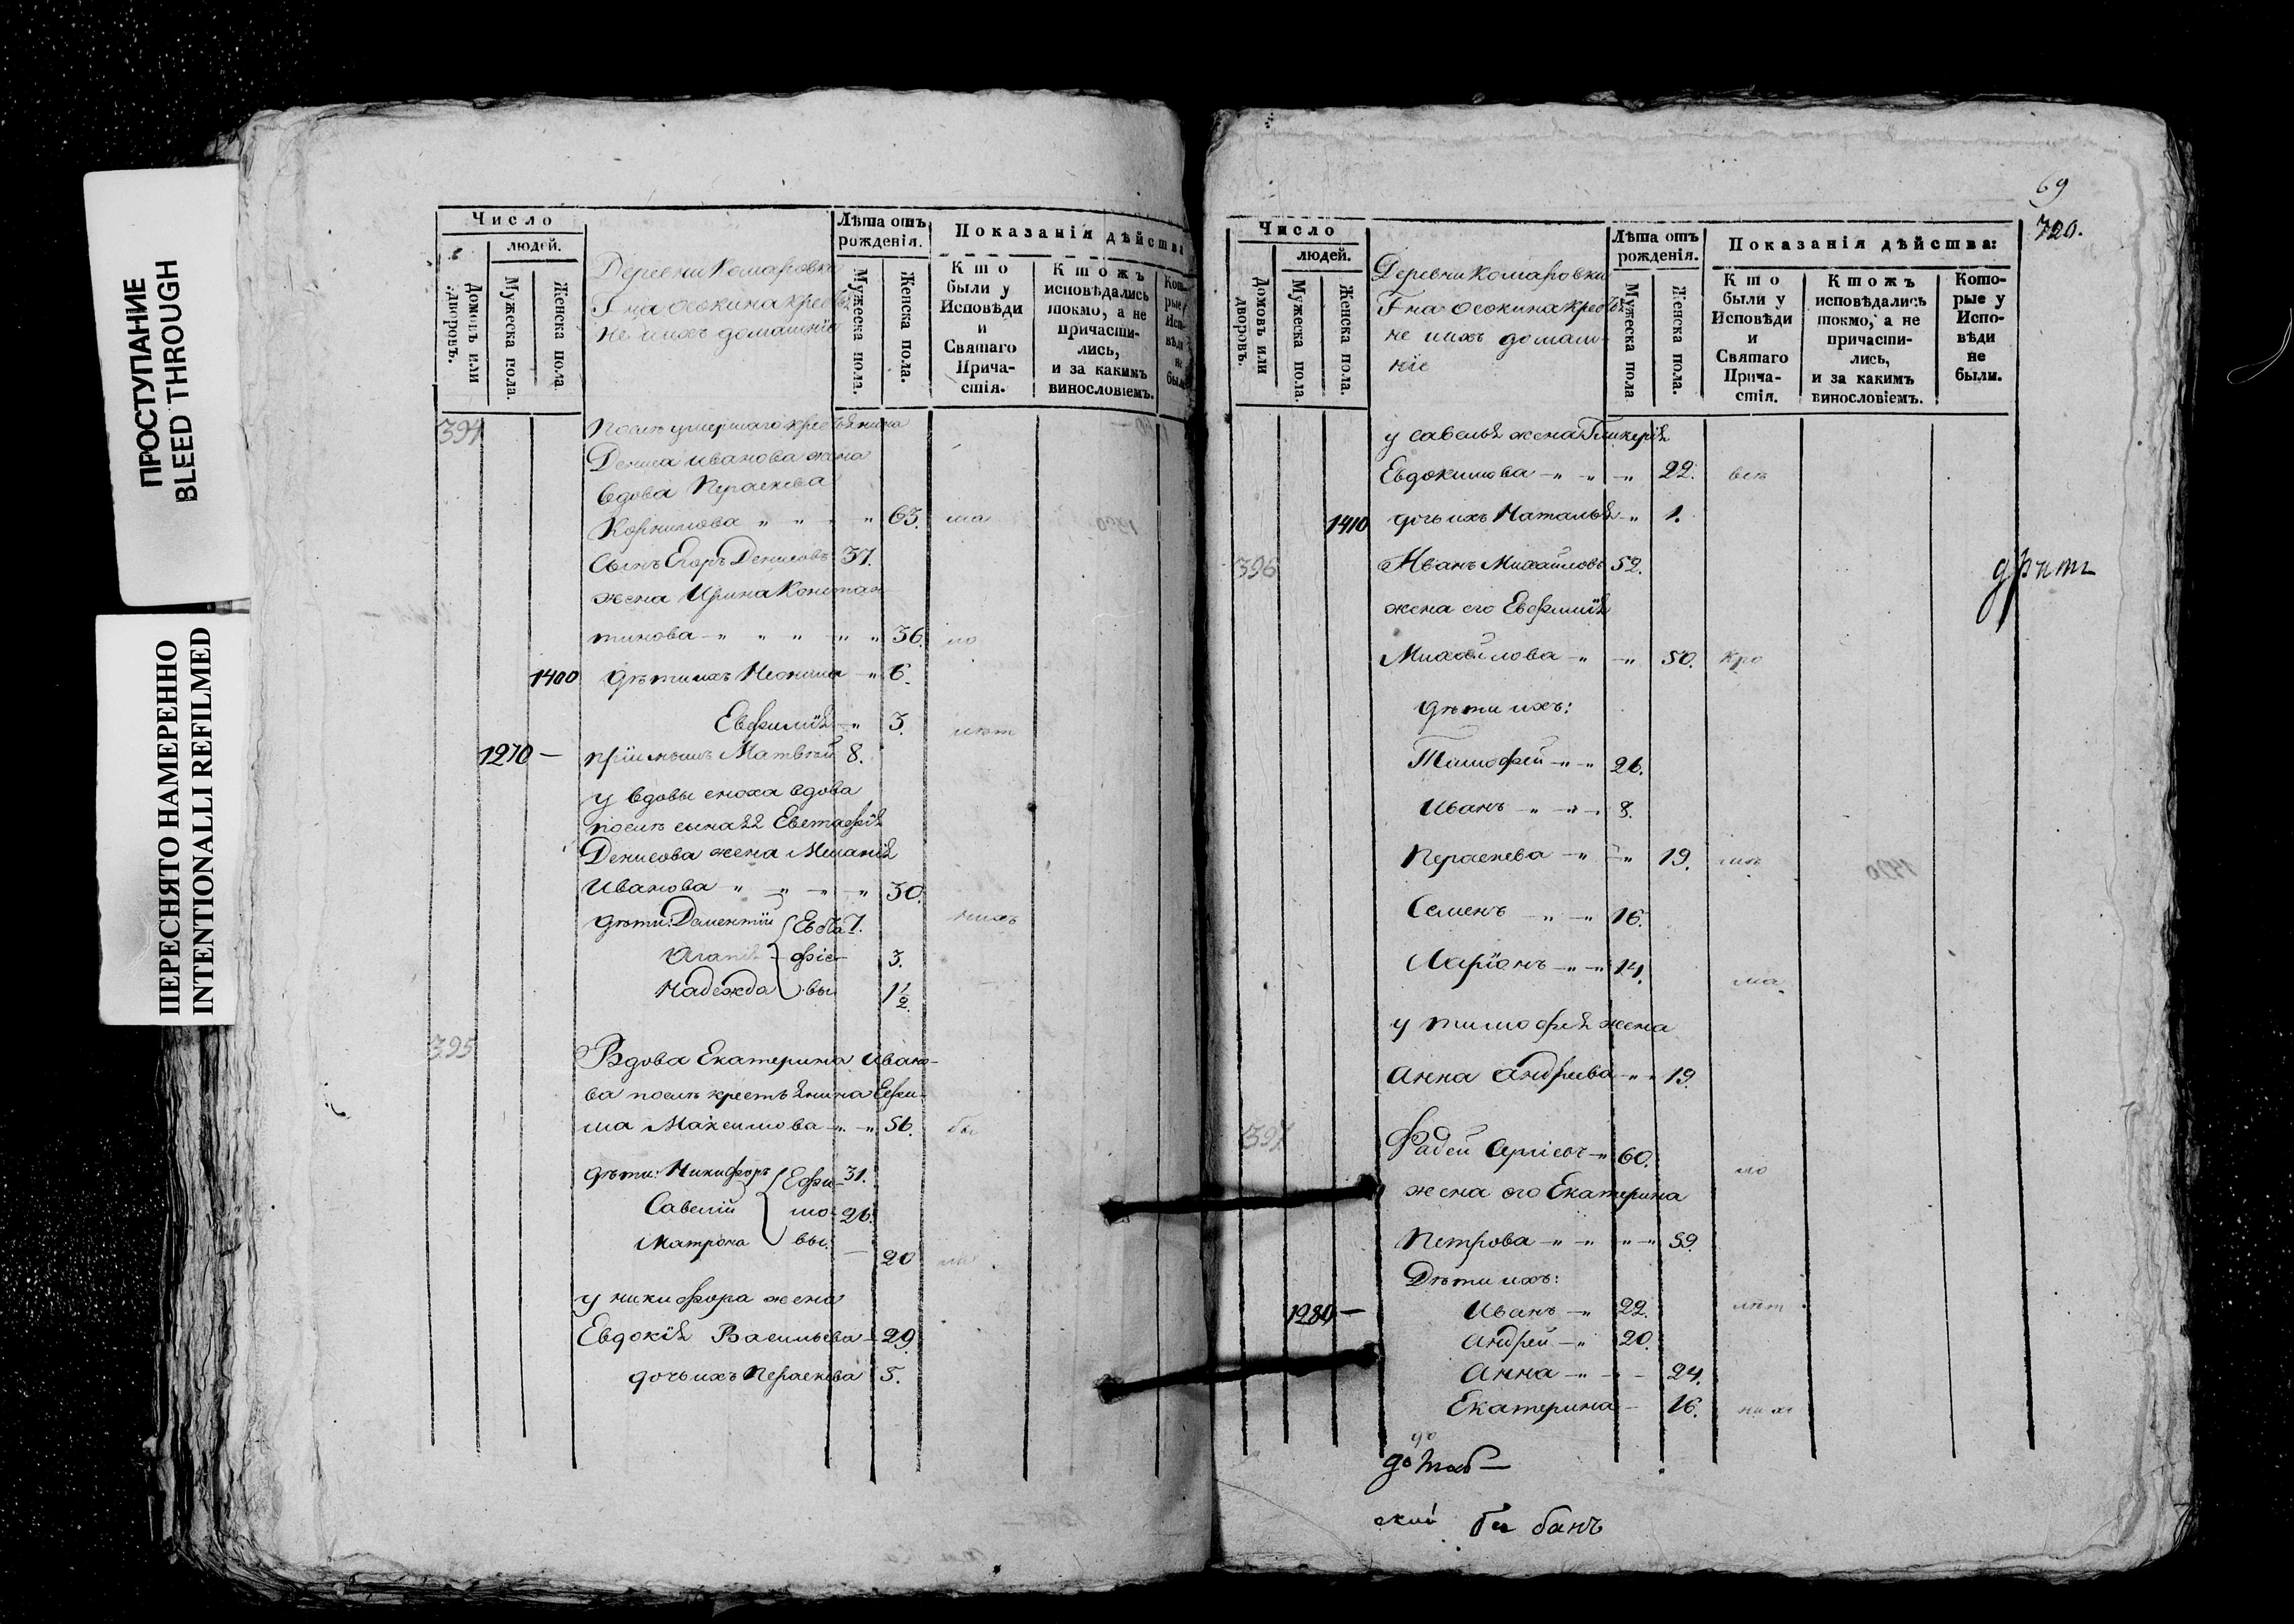 ПРОСТУПАНИЕ
BLEED THROUGH
ПЕРЕСНЯТО НАМЕРЕННО
INTENTIONALLI REFILMED
Число
людей.
Домовъ или дворовъ.
Мужеска пола.
Женска пола.
Деревни Комаровки
Гна Осокина
не ихъ домашніе
Лѣта отъ рожденія.
Мужеска пола.
Женска пола.
Показанія дѣйства
Кто были у Исповѣди и Святаго Причастія.
Ктожъ исповѣдались токмо, а не причастились, и за какимъ винословіемъ.
Которые у Исповѣди не были
394 после умершаго
Дениса Иванова жена
вдова Параскева
Корнилова 63.
сынъ Егоръ Денисовъ 37.
жена Ирина Констан
тинова 36.
1400 дѣти ихъ 6.
Евфимія 3.
1270 — пріимышъ Матвѣй 8.
у вдовы сноха вдова
после сына ея Евстафія
Денисова жена Меланія
Иванова 30.
дѣти: Дементій Евста 7.
Агапія фіе 3.
Надежда вы 1 1/2.
395 Вдова Екатерина Ивано-
ва после крестьянина Ефи-
ма Максимова 56.
дѣти: Никифоръ Ефи- 31.
Савелій мо- 26.
Матрона вы. 20
у Никифора жена
Евдокія Васильева 29.
дочь ихъ Параскева 5.
69
720.
Число
людей.
Домовъ или дворовъ.
Мужеска пола.
Женска пола.
Деревни Комаровки
Гна Осокина
не ихъ домаш-
ніе
Лѣта отъ рожденія.
Мужеска пола
Женска пола.
Показанія дѣйства:
Кто были у Исповѣди и Святаго Причастія.
Ктожъ исповѣдались токмо, а не причастились, и за какимъ винословіемъ.
Которые у Исповѣди не были.
у Савелья жена Гликерія
Евдокимова 22.
1410 дочь ихъ Наталья 1.
396 Иванъ Михайловъ 52.
жена его Евфимія
Михайлова 50.
дѣти ихъ:
Тимофей 26.
Иванъ 8.
Параскева 19.
Семенъ 16.
Ларіонъ 14.
у Тимофея жена
Анна Андреева 19.
397 Фадей 60.
жена его Екатерина
Петрова 59.
Дѣти ихъ:
1280 — Иванъ 22.
Андрей 20.
Анна 24.
Екатерина 16.